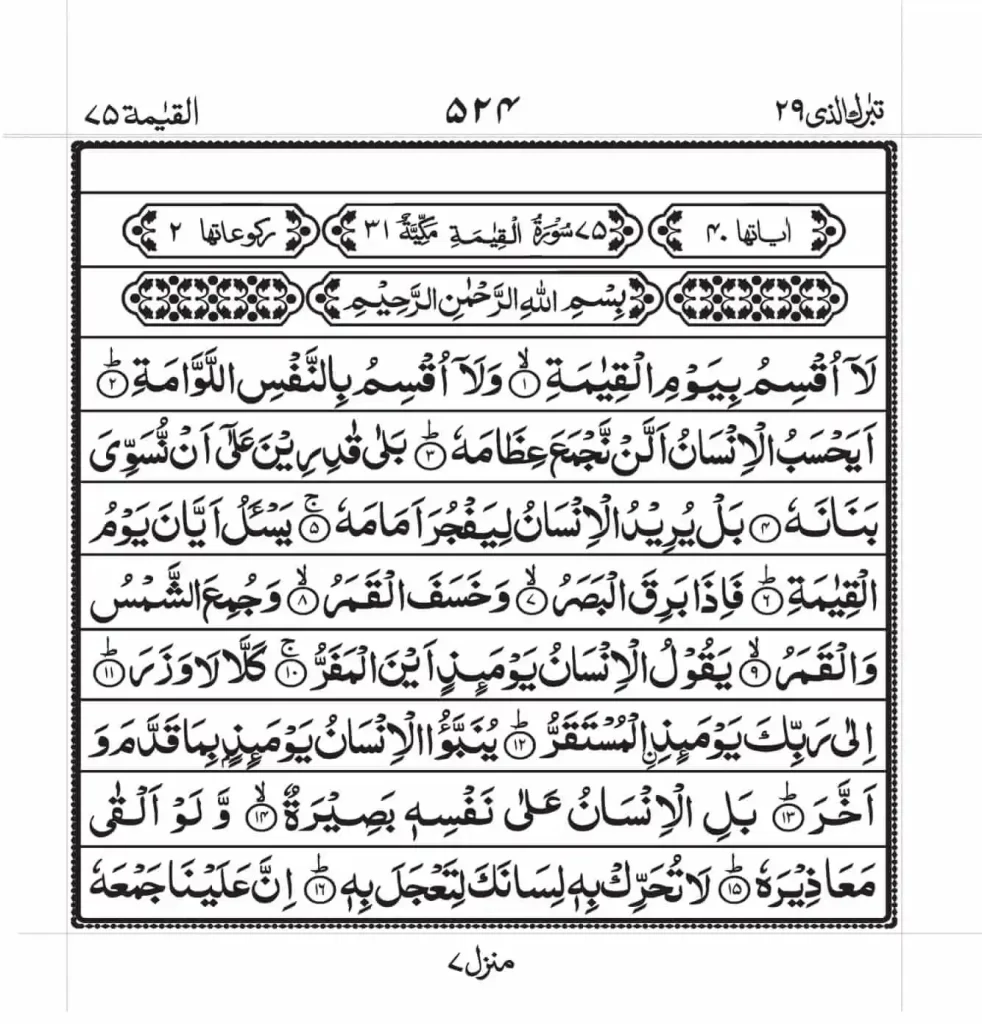 تبٰرك الذی ۲۹ ۵۲۴ القیٰمة ۷۵
اٰیاتها ۴۰ ۷۵ سُوْرَةُ الْقِیٰمَةِ مَكِّیَّةٌ ۳۱ ركوعاتها ۲
بِسْمِ اللهِ الرَّحْمٰنِ الرَّحِیْمِ
لَاۤ اُقْسِمُ بِیَوْمِ الْقِیٰمَةِ ۙ﴿۱﴾ وَلَاۤ اُقْسِمُ بِالنَّفْسِ اللَّوَّامَةِ ؕ﴿۲﴾
اَیَحْسَبُ الْاِنْسَانُ اَلَّنْ نَّجْمَعَ عِظَامَهٗ ؕ﴿۳﴾ بَلٰی قٰدِرِیْنَ عَلٰۤی اَنْ نُّسَوِّیَ
بَنَانَهٗ ﴿۴﴾ بَلْ یُرِیْدُ الْاِنْسَانُ لِیَفْجُرَ اَمَامَهٗ ۚ﴿۵﴾ یَسْـَٔلُ اَیَّانَ یَوْمُ
الْقِیٰمَةِ ؕ﴿۶﴾ فَاِذَا بَرِقَ الْبَصَرُ ۙ﴿۷﴾ وَخَسَفَ الْقَمَرُ ۙ﴿۸﴾ وَجُمِعَ الشَّمْسُ
وَالْقَمَرُ ۙ﴿۹﴾ یَقُوْلُ الْاِنْسَانُ یَوْمَىِٕذٍ اَیْنَ الْمَفَرُّ ۚ﴿۱۰﴾ كَلَّا لَا وَزَرَ ؕ﴿۱۱﴾
اِلٰی رَبِّكَ یَوْمَىِٕذِ ِ۟الْمُسْتَقَرُّ ؕ﴿۱۲﴾ یُنَبَّؤُا الْاِنْسَانُ یَوْمَىِٕذٍۭ بِمَا قَدَّمَ وَ
اَخَّرَ ؕ﴿۱۳﴾ بَلِ الْاِنْسَانُ عَلٰی نَفْسِهٖ بَصِیْرَةٌ ۙ﴿۱۴﴾ وَّ لَوْ اَلْقٰی
مَعَاذِیْرَهٗ ؕ﴿۱۵﴾ لَا تُحَرِّكْ بِهٖ لِسَانَكَ لِتَعْجَلَ بِهٖ ؕ﴿۱۶﴾ اِنَّ عَلَیْنَا جَمْعَهٗ
منزل ۷